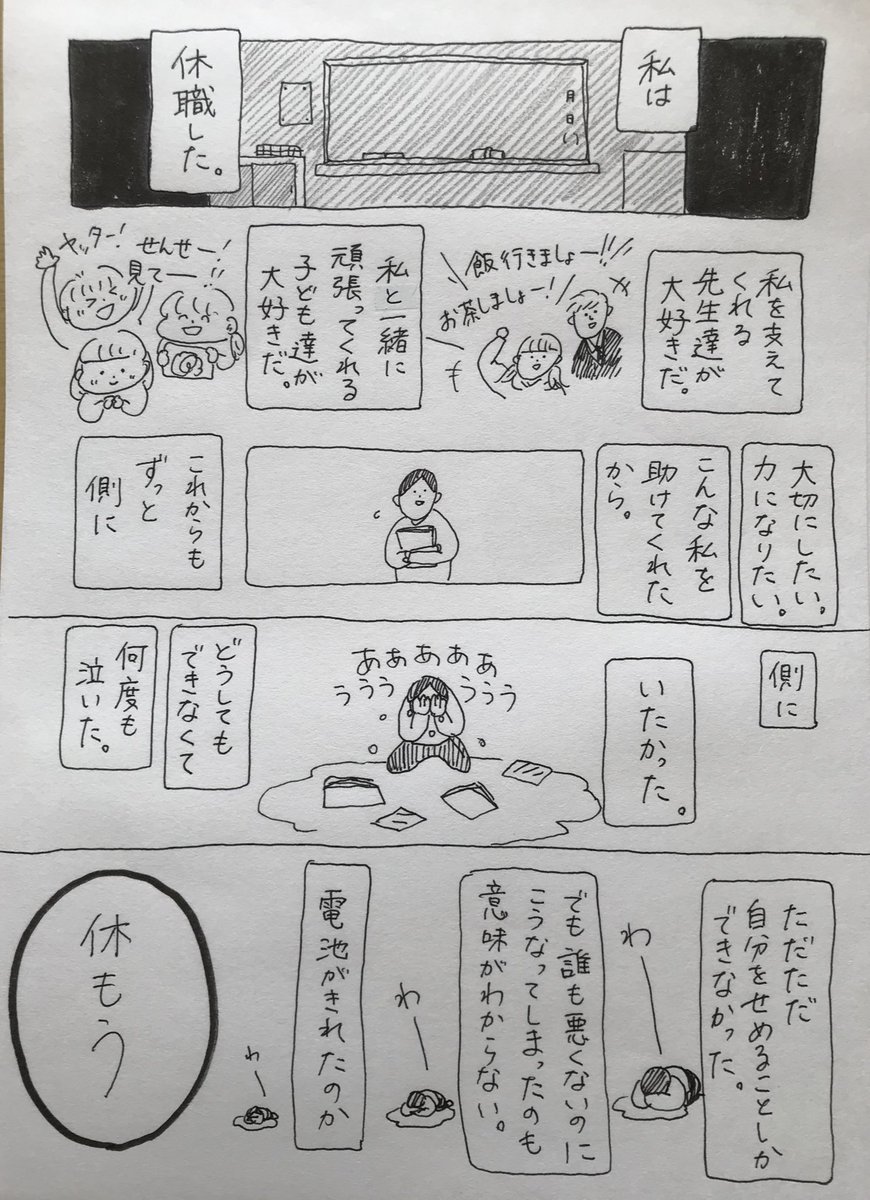 私は
月
日
い
休職した。
私を支えて
くれる
先生達が
大好きだ。
飯行きましょー!!
お茶しましょー!
私と一緒に
頑張ってくれる
子ども達が
大好きだ。
せんせー!
見てー!!
ヤッター!
大切にしたい。
力になりたい。
こんな私を
助けてくれた
から。
これからも
ずっと
側に
側に
いたかった。
あぁぁぁあ
ううううううう
どうしても
できなくて
何度も
泣いた。
ただただ
自分をせめることしか
できなかった。
わ―
でも誰も悪くないのに
こうなってしまったのも
意味がわからない。
わ―
電池がきれたのか
わ―
休もう